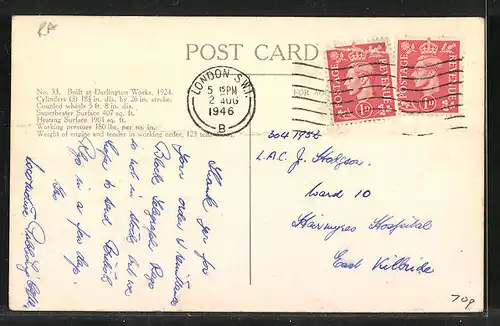 POST CARD
No. 33. Built at Darlington Works, 1924.
Cylinders (3) 18½ in. dia. by 26 in. stroke.
Coupled wheels 5 ft. 8 in. dia.
Superheater Surface 407 sq. ft.
Heating Surface 1901 sq. ft.
Working pressure 180 lbs. per sq. in.
Weight of engine and tender in working order, 123
FOR
LONDON S.W.1.
5 15PM
2 AUG
1946
B
POSTAGE REVENUE
1D
POSTAGE REVENUE
1D
Thank you for
your order & remittance
Black
do not in stock but we
hope to send
in a few days
The
Locomotive Publishing Co Ltd
L.A.C. J.
Ward 10
Hairmyres Hospital
East Kilbride
70p